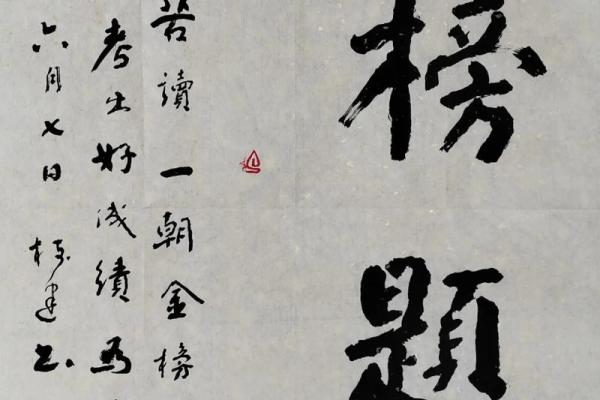 榜題
苦讀一朝金榜
考出好成績为
六月七日 建书